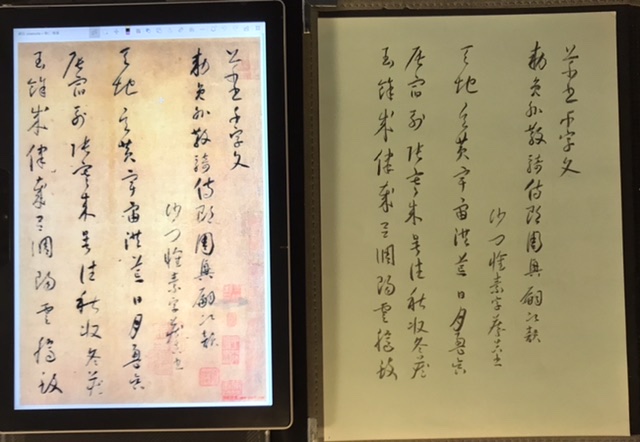 草書千字文
勅員外散騎侍郎周興嗣次韻
沙門懷素字藏真書
天地玄黃宇宙洪荒日月盈昃
辰宿列張寒來暑往秋收冬藏
閏餘成律歲呂調陽雲騰致
草書千字文
勅員外散騎侍郎周興嗣次韻
沙門懷素字藏真書
天地玄黃宇宙洪荒日月盈昃
辰宿列張寒來暑往秋收冬藏
閏餘成律歲呂調陽雲騰致